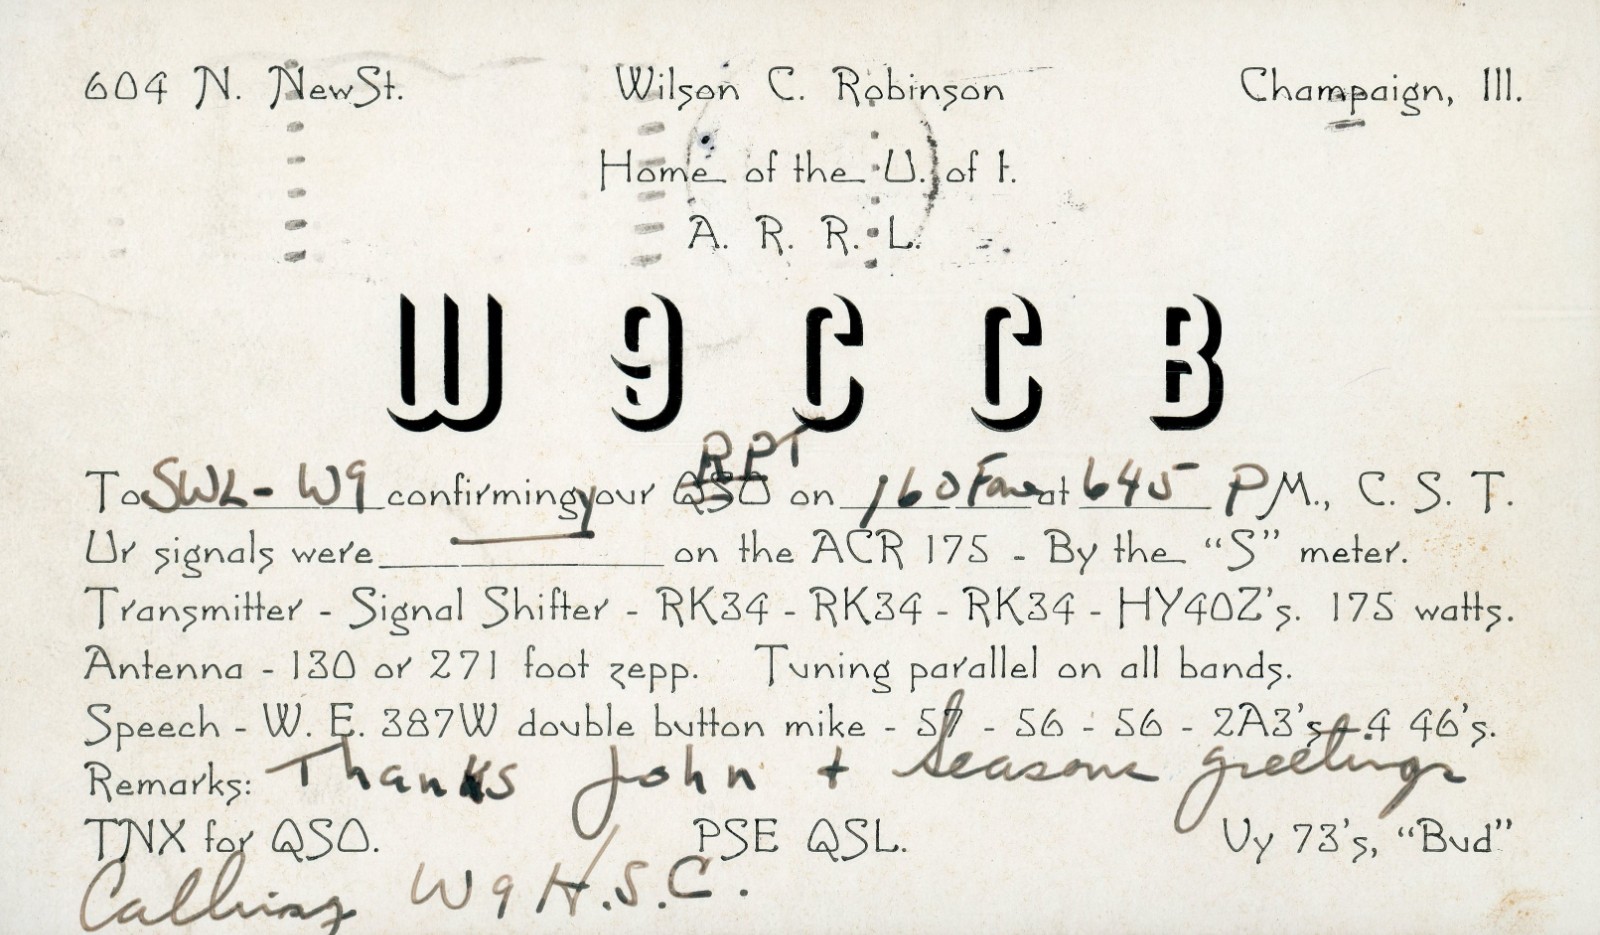 604 N. New St. Wilson C. Robinson Champaign, Ill.
Home of the U. of I.
A. R. R. L.
W 9 C C B
RPT
To SWL - W9 confirming your QSO on 160 Fone at 645 P M., C. S. T.
Ur signals were — on the ACR 175 - By the “S” meter.
Transmitter - Signal Shifter - RK34 - RK34 - RK34 - HY40Z's. 175 watts.
Antenna - 130 or 271 foot zepp. Tuning parallel on all bands.
Speech - W. E. 387W double button mike - 57 - 56 - 56 - 2A3's - 4 46's.
Remarks: Thanks John + Seasons greetings
TNX for QSO. PSE QSL. Vy 73's, “Bud”
Calling W9 H.S.C.